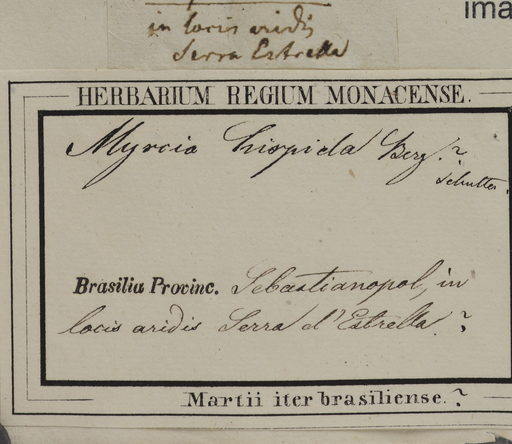 ima
in locis aridis
Serra Estrella
HERBARIUM REGIUM MONACENSE.
Myrcia hispida Berg.?
Brasilia Provinc. Sebastianopol, in
locis aridis Serra d'Estrella?
Martii iter brasiliense.?